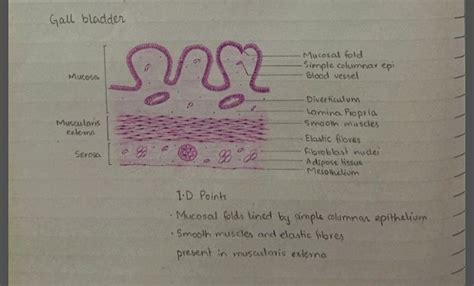 Gall bladder
Mucosa
Muscularis
externa
Serosa
Mucosal fold
Simple columnar epi
Blood vessel
Diverticulum
Lamina Propria
Smooth muscles
Elastic fibres
Fibroblast nuclei
Adipose tissue
Mesothelium
I.D Points
• Mucosal folds lined by simple columnar epithelium
• Smooth muscles and elastic fibres
present in muscularis externa